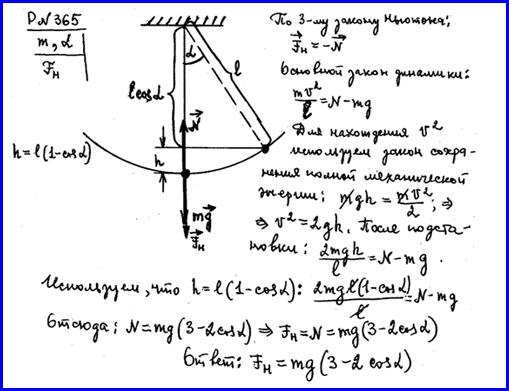 P N 365
m, α
F_н
α
l
l cosα
N⃗
h = l(1-cosα)
h
mg⃗
F⃗_н
По 3-му закону Ньютона:
F⃗_н = -N⃗
Основной закон динамики:
mv²/l = N-mg
Для нахождения v²
используем закон сохра-
нения полной механической
энергии: mgh = mv²/2; ⇒
⇒ v² = 2gh. После подста-
новки: 2mgh/l = N-mg.
Используем, что h = l(1-cosα): 2mgl(1-cosα)/l = N-mg
Отсюда: N = mg(3-2cosα) ⇒ F_н = N = mg(3-2cosα)
Ответ: F_н = mg(3-2 cosα)